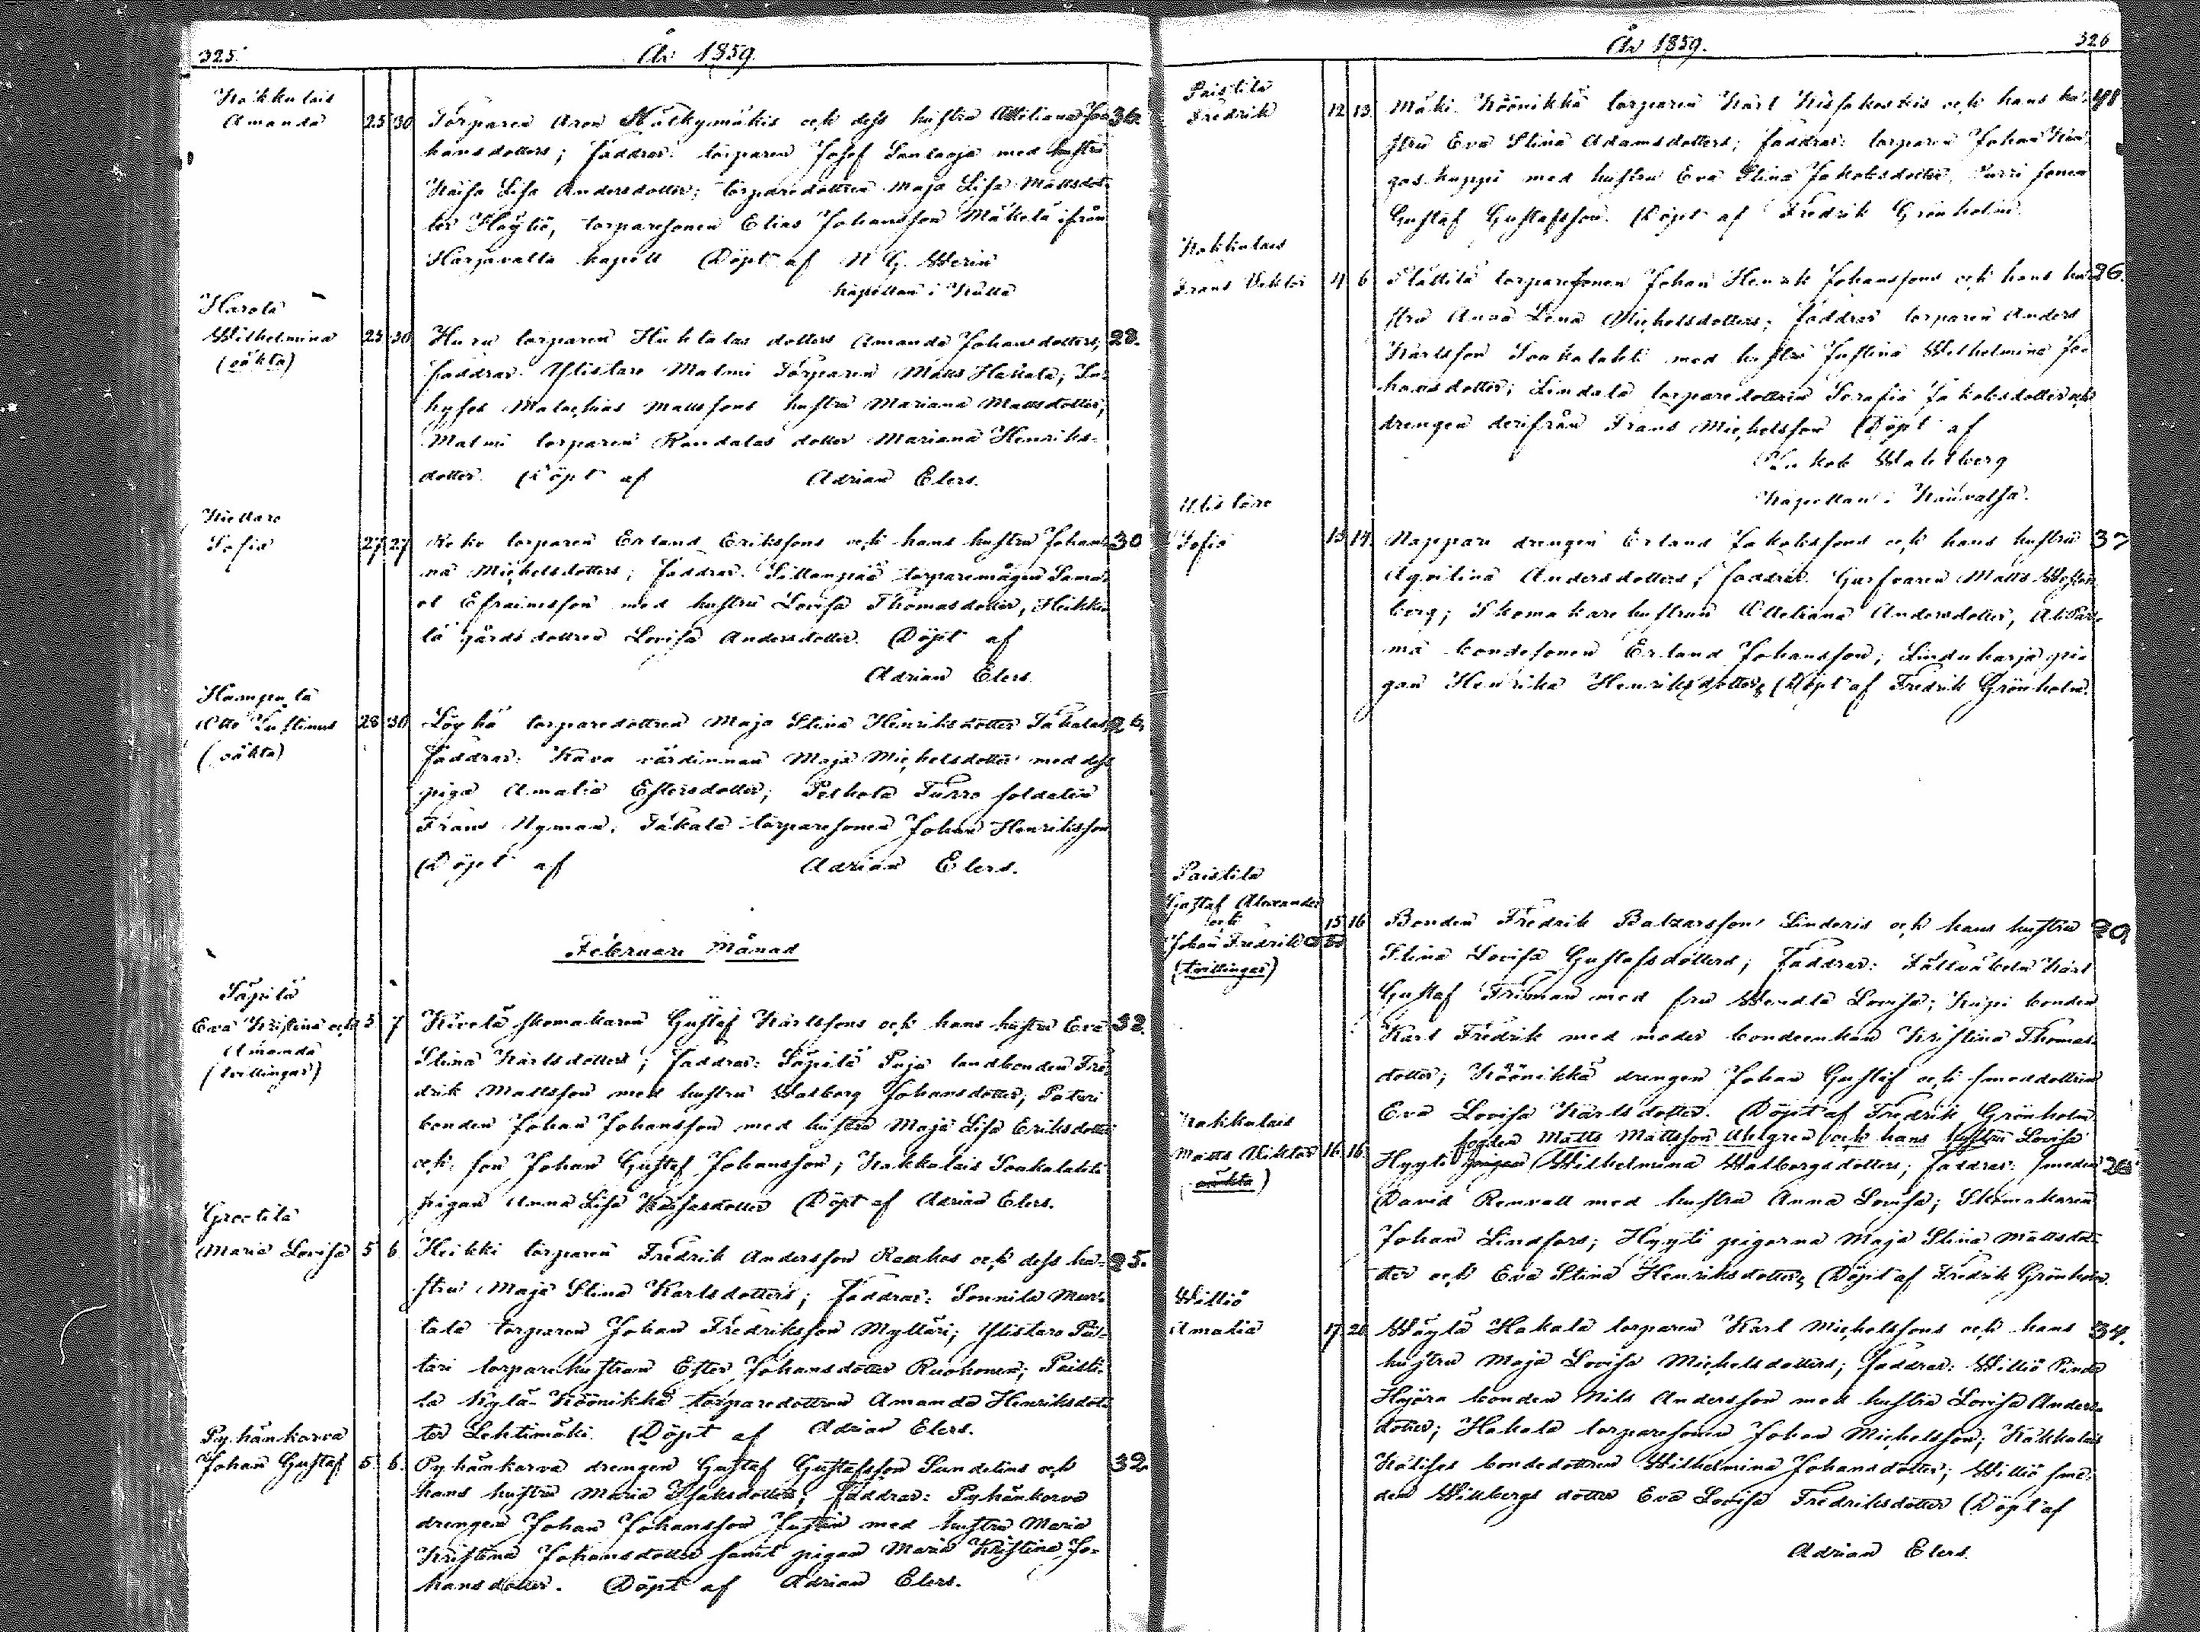 325.
År 1859.
Kakkulais
Amanda 25 30 Torparen Aron Hälkymäkis och dess hustru Miliana Jo- 36.
hansdotters; faddrar: torparen Josef Santaoja med hustru
Kaisa Lisa Andersdotter; torparedottren Maja Lisa Mattsdot-
ter Höytiö, torparesonen Elias Johansson Mäkelä ifrån
Harjavalta kapell Döpt af N G Werin
kapellan i Kulla
Harola
Wilhelmina 23 30 Huru torparen Huhtalas dotters Amanda Johansdotters; 28.
(oäkta) faddrar: Ylistaro Malmi torparen Matts Hakala;
hyses Malachias Mattsons hustru Mariana Mattsdotter;
Malmi torparen Randalas dotter Mariana Henriks-
dotter. Döpt af Adrian Elers.
Kiettare
Sofia 27 27 Koko torparen Erland Erikssons och hans hustru Johan- 30
na Michelsdotters; faddrar: torparemågen Samu-
el Efraimsson med hustru Lovisa Thomasdotter, Heikki-
lä gårdsdottren Lovisa Andersdotter. Döpt af
Adrian Elers.
Hampula
Otto Justinus 28 30 Löykä torparedottren Maja Stina Henriksdotter Takalas 26.
(oäkta) faddrar: Kava värdinnan Maja Michelsdotter med dess
piga Amalia Estersdotter; Pelkola Turro soldaten
Frans Nyman, Takala torparesonen Johan Henriksson
Döpt af Adrian Elers.
Februari Månad
Säpilä
Eva Kristina och 5 7 Kivelä skomakaren Gustaf Karlssons och hans hustru Eva 32.
Amanda Stina Karlsdotters; faddrar: Säpilä Puja landbonden Fre-
(tvillingar) drik Mattsson med hustru Walborg Johansdotter; Pateri
bonden Johan Johansson med hustru Maja Lisa Eriksdotter
och son Johan Gustaf Johansson; Kakkulais Soakalahti
pigan Anna Lisa Döpt af Adrian Elers.
Greetilä
Maria Lovisa 5 6 Heikki torparen Fredrik Andersson Raukas och dess hu- 25.
stru Maja Stina Karlsdotters; faddrar: Sonnila Mar-
tala torparen Johan Fredriksson Mylläri; Ylistaro Päl-
täri torparehustrun Ester Johansdotter Ruohonen; Paisti-
la Kylä-Köönikkä torparedottren Amanda Henriksdot-
ter Lehtimäki. Döpt af Adrian Elers.
Pyhänkorva
Johan Gustaf 5 6 Pyhänkorva drengen Gustaf Gustafsson Sundelins och 32.
hans hustru Maria Isaksdotters; faddrar: Pyhänkorva
drengen Johan Johansson Justin med hustru Maria
Kristina Johansdotter samt pigan Maria Kristina Jo-
hansdotter. Döpt af Adrian Elers.
År 1859.
326
Paistila
Fredrik 12 13 Mäki-Köönikkä torparen Karl Kisakoskis och hans hu- 48.
stru Eva Stina Adamsdotters; faddrar: torparen Johan
med hustru Eva Stina Jakobsdotter, Purri sonen
Gustaf Gustafsson. Döpt af Fredrik Grönholm.
Kakkulais
Frans Viktor 4 6 torparesonen Johan Henrik Johanssons och hans hu- 26.
stru Anna Lena Michelsdotters; faddrar torparen Anders
Karlsson Soakalahti med hustru Justina Wilhelmina Jo-
hansdotter; Lindala torparedottren Serafia Jakobsdotter och
drengen derifrån Frans Michelsson Döpt af
Jakob Wahlberg
kapellan i Kauvatsa.
Ylistaro
Sofia 13 14 Nappari drengen Erland Jakobssons och hans hustru 37
Aqvilina Andersdotters; faddrar: Garfvaren Matts Westen-
berg; Skomakarehustrun Miliana Andersdotter, Ali-Pär-
mä bondesonen Erland Johansson; Linduharja pi-
gan Henrika Henriksdotter. Döpt af Fredrik Grönholm.
Paistila
Gustaf Alexander
och 15 16 Bonden Fredrik Balzarsson Linderis och hans hustru 29
Johan Fredrik Stina Lovisa Gustafsdotters; faddrar: Fältväbeln Karl
(tvillingar) Gustaf Friman med fru Wendla Lovisa; Kupi bonden
Karl Fredrik med moder bondeenkan Kristina Thomas-
dotter; Köönikkä drengen Johan Gustaf och smeddottren
Eva Lovisa Karlsdotter. Döpt af Fredrik Grönholm.
Kakkulais
Matts Mattsson Ahlgren och hans hustru Lovisa
Matts Viktor 16 16 Hyyti pigan Wilhelmina Walborgsdotters; faddrar: smeden 28
(oäkta) David Renvall med hustru Anna Lovisa; Skomakaren
Johan Lindfors; Hyyti pigorna Maja Stina Mattsdot-
ter och Eva Stina Henriksdotter. Döpt af Fredrik Grönholm.
Williö
Amalia 17 20 Wäylä Hakala torparen Karl Michelssons och hans 34.
hustru Maja Lovisa Michelsdotters; faddrar: Williö
Hyöra bonden Nils Andersson med hustru Lovisa Anders-
dotter; Hakala torparesonen Johan Michelsson; Kakkulais
bondedottren Wilhelmina Johansdotter; Williö sme-
den Willbergs dotter Eva Lovisa Fredriksdotter Döpt af
Adrian Elers.